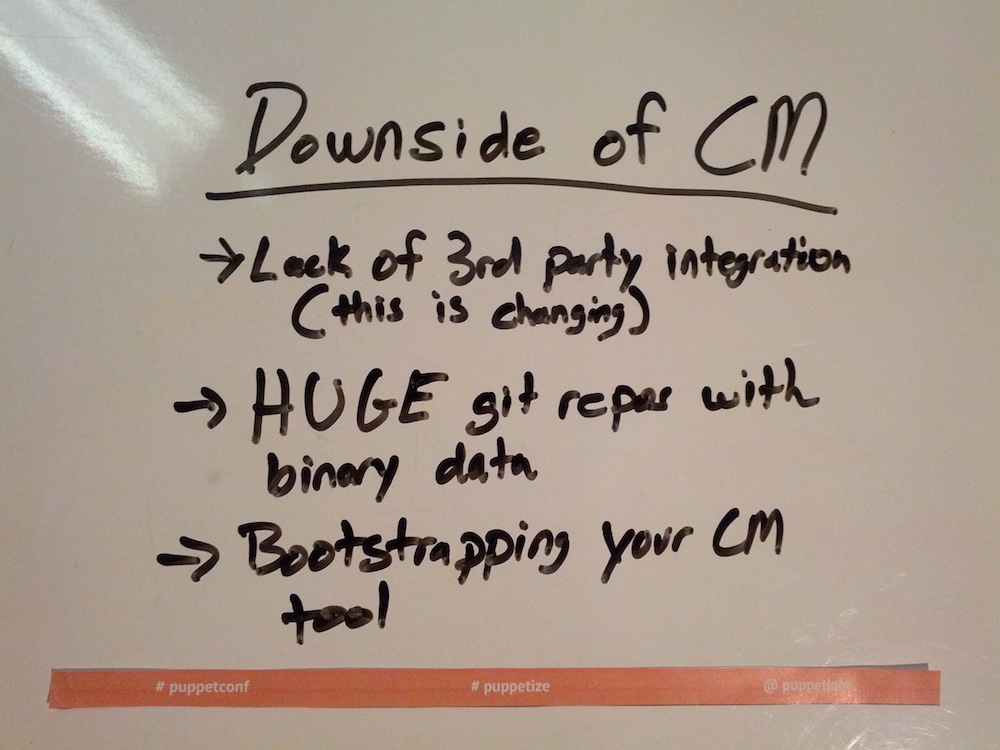 Downside of CM
→ Lack of 3rd party integration
(this is changing)
→ HUGE git repos with
binary data
→ Bootstrapping your CM
tool
# puppetconf # puppetize @ puppetlabs